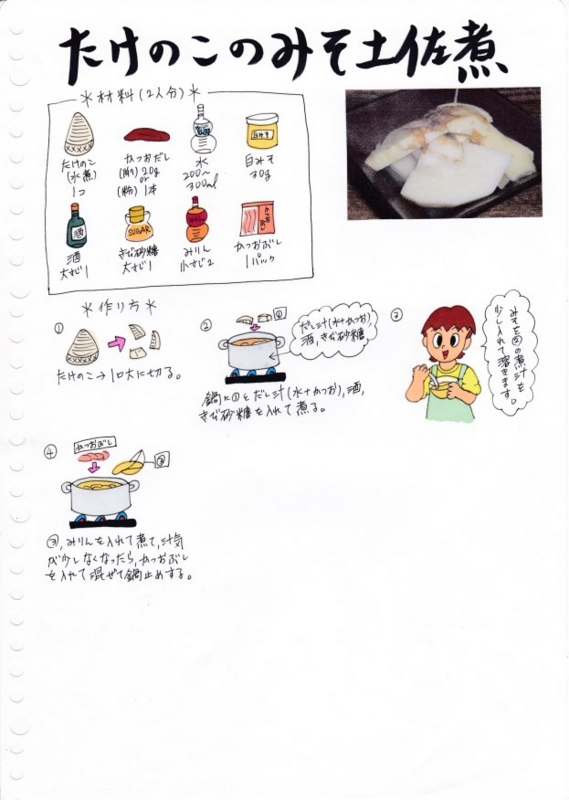 たけのこのみそ土佐煮
＊材料(2人分)＊
たけのこ
(水煮)
1コ
かつおだし
(削り)20g
or
(粉)1本
水
200〜
300ml
白みそ
白みそ
30g
酒
酒
大さじ1
SUGAR
きび砂糖
大さじ1
みりん
小さじ2
かつおぶし
1パック
＊作り方＊
①
たけのこ→1口大に切る。
②
①
だし汁(水+かつお),
酒,きび砂糖
鍋に①とだし汁(水+かつお),酒,
きび砂糖を入れて煮る。
③
みそを②の煮汁を
少し入れて溶きます。
④
かつおぶし
③
③,みりんを入れて煮て,汁気
が少しなくなったら,かつおぶし
を入れて混ぜて鍋止めする。